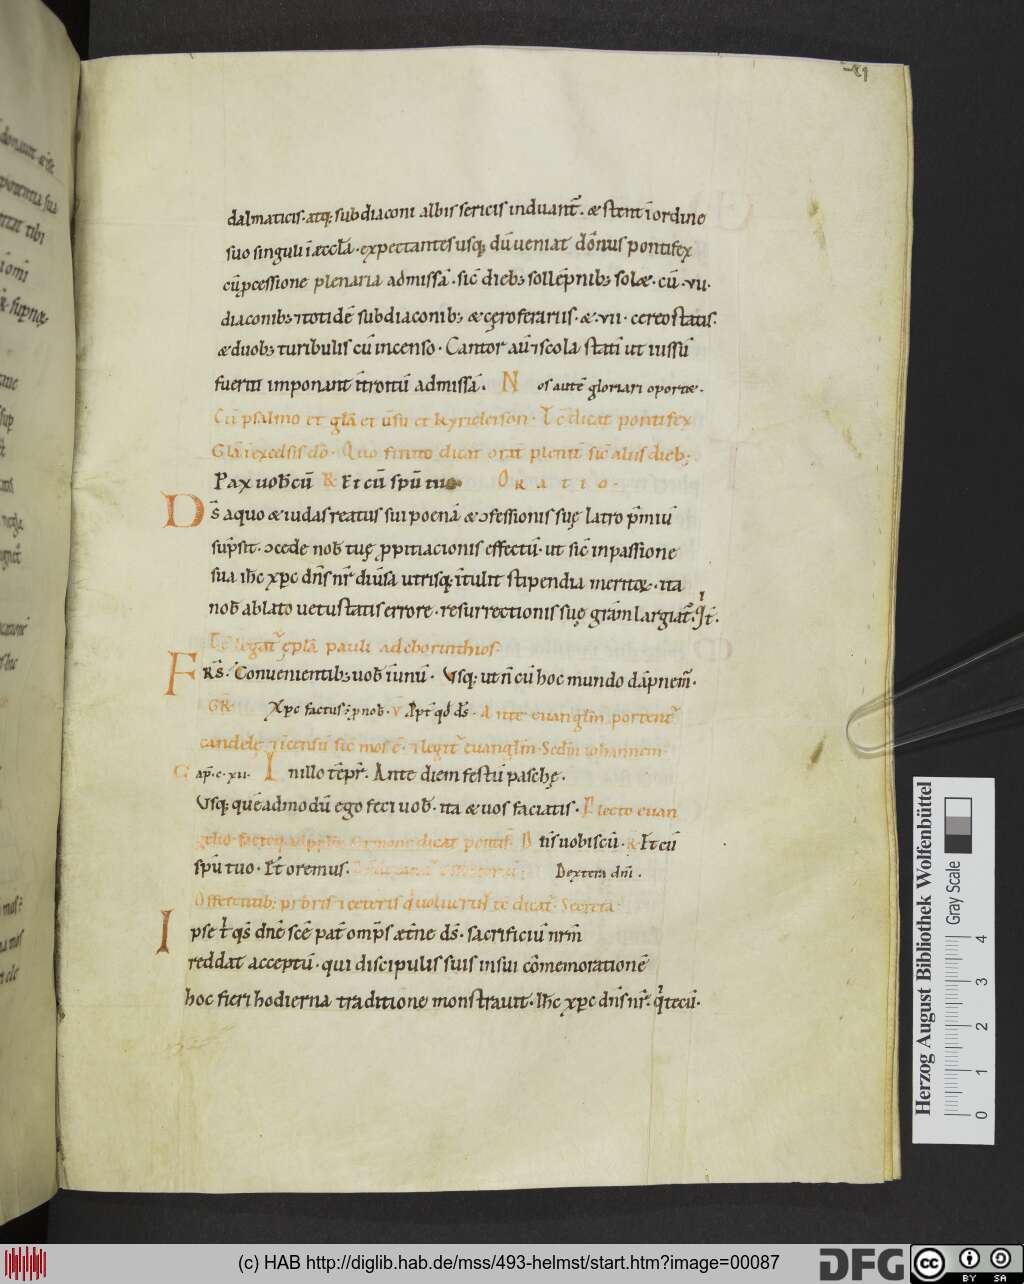 41
dalmaticis · atq; subdiaconi albis sericis induant̄. & stent ī ordine
suo singuli ī æccl̄a · expectantes usq; dū ueniat dōnus pontifex
cū p̄cessione plenaria ad missā · sic̄ dieb; sollēpnib; solæ · cū · vii ·
diaconib; ⁊ totidē subdiaconib; & cęroferariis · & · vii · cereostatis.
& duob; turibulis cū incenso · Cantor aū ⁊ scola statī ut iussū
fuerit imponant īntroitū ad missā · Nos autē gloriari oportæ ·
Cū psalmo et gl̄a et ūsu et kyrieleison · Tc̄ dicat pontifex
Gl̄a ī excelsis dō · Quo finito dicat orat̄ plenit̄ sic̄ aliis dieb;
Pax uob̄ cū R Et cū spū tuo ORATIO ·
Ds̄ a quo & iudas reatus sui poenā & ↄfessionis suę latro p̄miū
sūpsit · ↄcede nob̄ tuę p̱pitiacionis effectū · ut sic̄ in passione
sua ih̄c xp̄c dn̄s nr̄ diūsa utrisq; ītulit stipendia meritoꝝ · ita
nob̄ ablato uetustatis errore · resurrectionis suę grām largiat̄. Q̇ t̄.
Tc̄ legat̄ ep̄la pauli ad chorinthios ·
FRS̄. Conuenientib; uob̄ ī unū · Usq; ut n̄ cū hoc mundo dāpnem̄ ·
GR̄ Xp̄c factus ē p̱ nob̄ · V P̱pt̄ qd̄ ds̄ · Ante euangliū portent̄
candelę ⁊ īcensū sic̄ mos ē · ⁊ legit̄ euangliū · Sedm̄ iohannem ·
Cap̄ · c · xii · In illo tēpr̄. Ante diem festū paschę ·
Usq; quēadmodū ego feci uob̄ · ita & uos faciatis · P lecto euan
Dn̄s uobiscū · R Et cū
spū tuo · Et̄ oremus · Dextera dn̄i ·
Offerentib; pr̄bris ⁊ ceteris q̇ uoluerint tc̄ dicat̄ · Secreta
Ipse t̄ qs̄ dn̄e sc̄e pat̄ omp̄s æt̄ne ds̄ · sacrificiū nr̄m
reddat acceptū · qui discipulis suis in sui cōmemorationē
hoc fieri hodierna traditione monstrauit · Ih̄c xp̄c dn̄s nr̄. q̇ tecū ·
Herzog August Bibliothek Wolfenbüttel
Gray Scale
0 1 2 3 4
(c) HAB http://diglib.hab.de/mss/493-helmst/start.htm?image=00087
DFG
cc BY SA